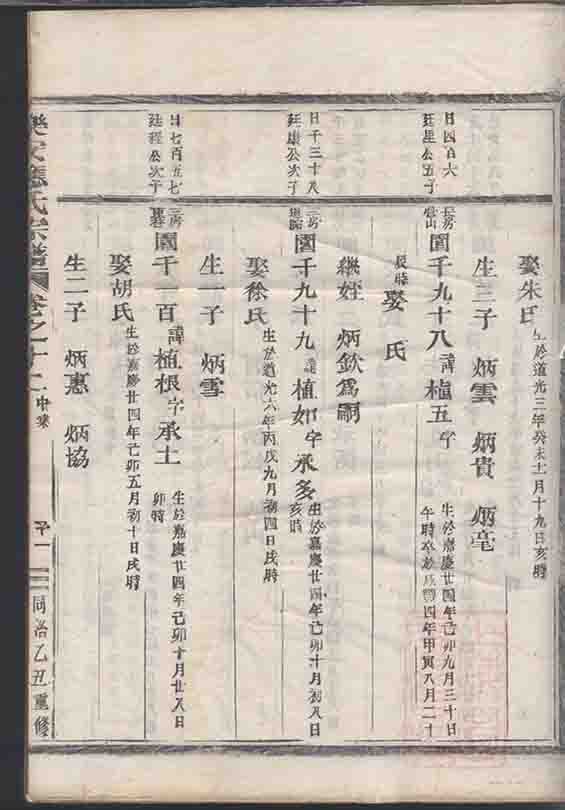 娶朱氏 生於道光三年癸未十一月十九日亥時
生三子 炳雲 炳貴 炳毫
日四百六
廷星公五子
長房
圖千九十八 諱植五字 生於嘉慶廿四年己卯九月三十日
午時卒於咸豐四年甲寅八月二十
辰時 娶 氏
繼姪 炳欽為嗣
日千三十八
廷康公次子
二房
圖千九十九 諱植如字承多 生於嘉慶廿四年己卯十月初八日
亥時
娶徐氏 生於道光六年丙戌九月初四日戌時
生一子 炳雪
日七百五七
廷程公次子
二房
圖千一百 諱植根字承土 生於嘉慶廿四年己卯十月廿八日
卯時
娶胡氏 生於嘉慶廿四年己卯五月初十日戌時
生二子 炳惠 炳協
樂安孫氏宗譜 卷之十二 中案 同治乙丑重修